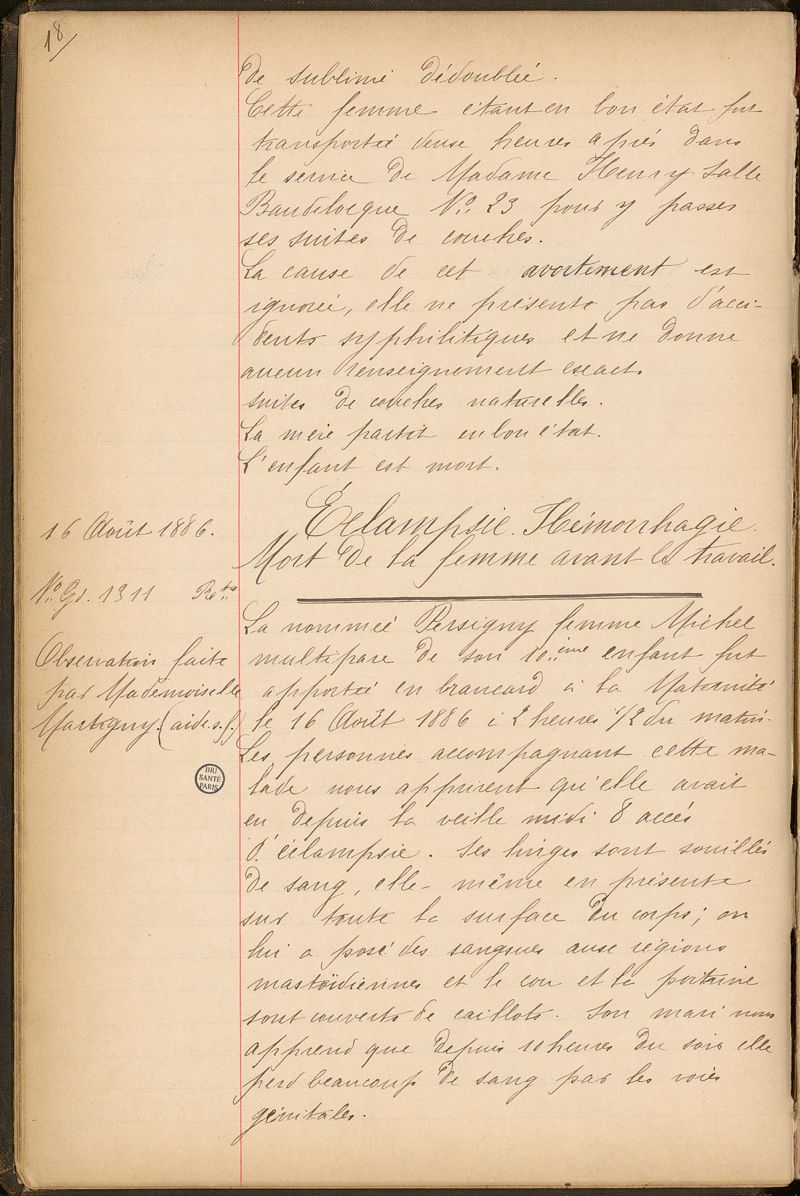 18/
de sublimé dédoublé.
Cette femme étant en bon état fut
transportée deux heures après dans
le service de Madame Henry salle
Baudelocque No. 23 pour y passer
ses suites de couches.
La cause de cet avortement est
ignorée, elle ne présente pas d'acci-
dents syphilitiques et ne donne
aucun renseignement exact.
suites de couches naturelles.
La mère partit en bon état.
L'enfant est mort.
16 Août 1886.
Éclampsie. Hémorrhagie.
Mort de la femme avant le travail.
No. Gd. 1311
Observation faite
par Mademoiselle
Martigny. (aide s.f.)
La nommée Persigny femme Michel
multipare de son 10.ième enfant fut
apportée en brancard à la Maternité
le 16 Août 1886 à 2 heures 1/2 du matin.
Les personnes accompagnant cette ma-
lade nous apprirent qu'elle avait
eu depuis la veille midi 8 accès
d'éclampsie. Ses linges sont souillés
de sang, elle-même en présente
sur toute la surface du corps; on
lui a posé des sangsues aux régions
mastoïdiennes et le cou et la poitrine
sont couverts de caillots. Son mari nous
apprend que depuis 10 heures du soir elle
perd beaucoup de sang par les voies
génitales.
BIU
SANTÉ
PARIS